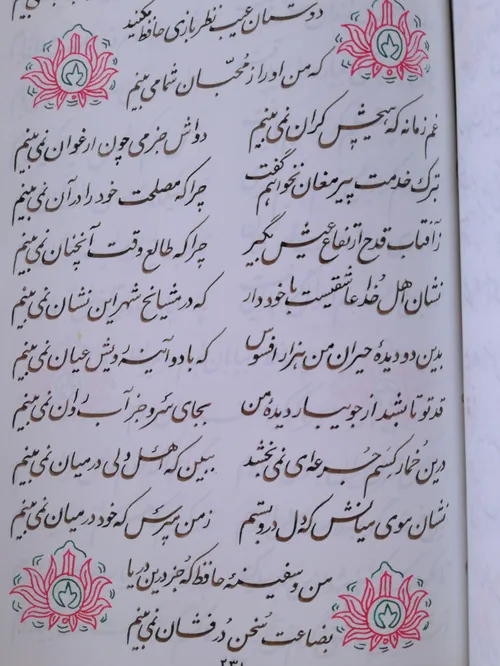 دوستان عیب نظربازی حافظ مکنید
که من او را ز محبّان شما می‌بینم
غم زمانه که هیچش کران نمی‌بینم دواش جز می چون ارغوان نمی‌بینم
بترک خدمت پیر مغان نخواهم گفت چرا که مصلحت خود در آن نمی‌بینم
ز آفتاب قدح ارتفاع عیش بگیر چرا که طالع وقت آنچنان نمی‌بینم
نشان اهل خدا عاشقیست با خود دار که در مشایخ شهر این نشان نمی‌بینم
بدین دو دیدهٔ حیران من هزار افسوس که با دو آینه رویش عیان نمی‌بینم
قد تو تا بشد از جویبار دیدهٔ من بجای سرو جز آب روان نمی‌بینم
درین خمار کسم جرعه‌ای نمی‌بخشد ببین که اهل دلی در میان نمی‌بینم
نشان موی میانش که دل درو بستم ز من مپرس که خود در میان نمی‌بینم
من و سفینهٔ حافظ که جز درین دریا
بضاعت سخن درفشان نمی‌بینم